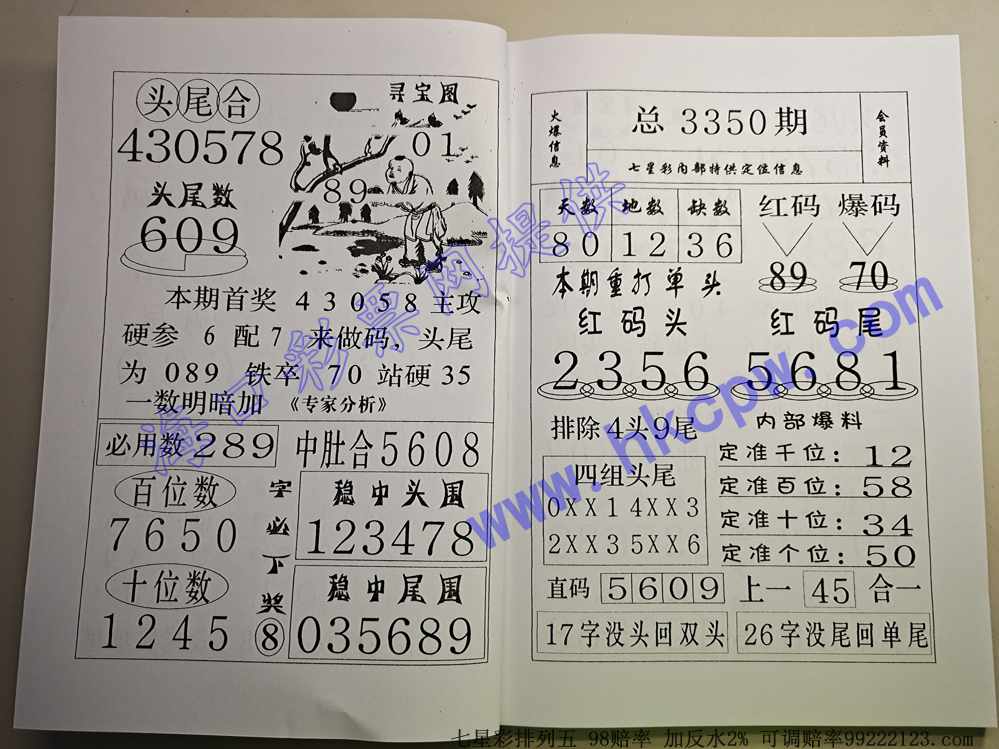 头尾合
430578
寻宝图
01
89
头尾数
609
本期首奖 43058主攻
硬参 6 配7 来做码，头尾
为 089 铁卒 70 站硬35
一数明暗加 《专家分析》
必用数289
中肚合5608
百位数
7650
字必下奖⑧
稳中头围
123478
十位数
1245
稳中尾围
035689
火爆信息
总 3350期
七星彩内部特供定位信息
会员资料
天数 地数 缺数
80 12 36
红码 爆码
89 70
本期重打单头
红码头 红码尾
2356 5681
排除4头9尾
内部爆料
四组头尾
0XX1 4XX3
2XX3 5XX6
定准千位：12
定准百位：58
定准十位：34
定准个位：50
直码 5609 上一 45 合一
17字没头回双头 26字没尾回单尾
海口彩票网提供
www.hkcpw.com
七星彩排列五 98赔率 加反水2% 可调赔率99222123.com